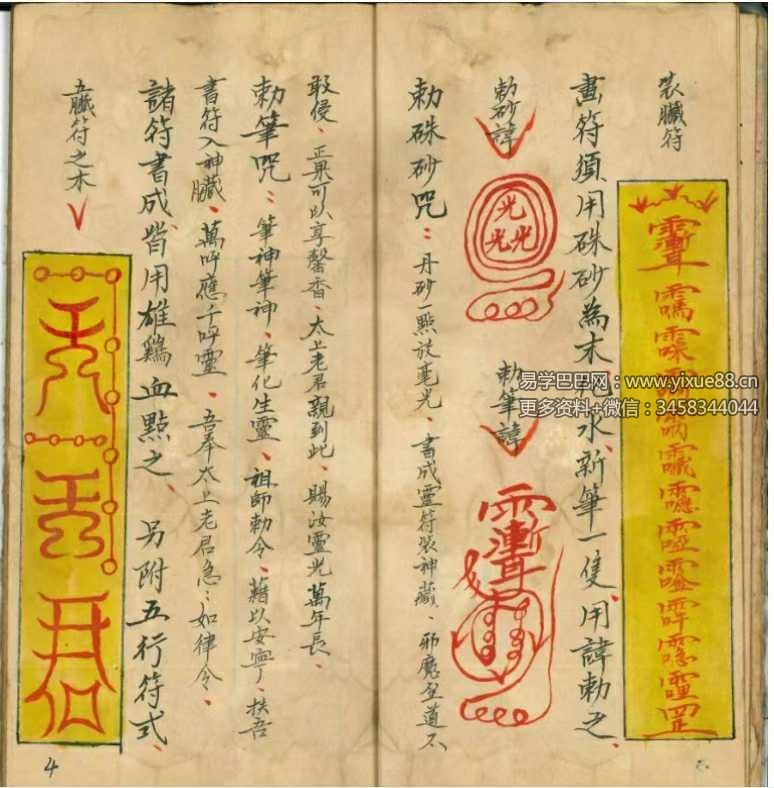 裝臟符
畫符須用硃砂為末、純水、新筆一隻、用諱勅之、
勅砂諱
光
光光
勅筆諱
勅硃砂咒：丹砂一點放毫光、書成靈符裝神藏、邪魔妖道不
敢侵、正果可以享馨香、太上老君親到此、賜汝靈光萬年長、
勅筆咒：筆神筆神、筆化生靈、祖師勅令、藉以安寧、扶吾
書符入神臟、萬呼應千呼靈、吾奉太上老君急：如律令、
諸符書成、皆用雄鷄血點之、另附五行符式、
五臟符之木
4
易学巴巴网：www.yixue88.cn
更多资料+微信：3458344044